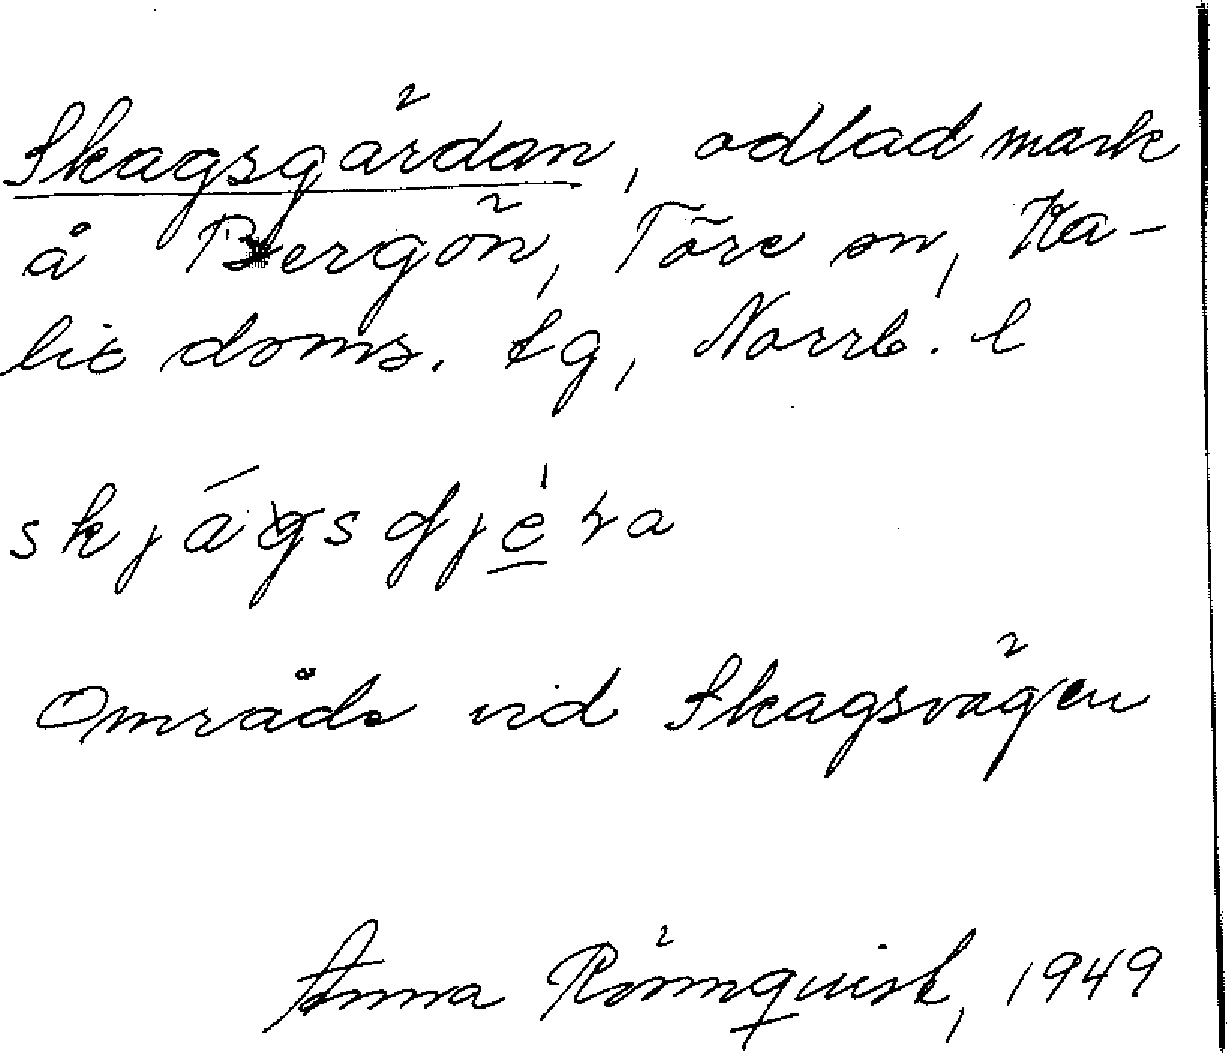 Skagsgärdan, odlad mark
å Bergön, Töre sn, Ka-
lix doms. tg, Norrb. l
skjágsgjèra
Område vid Skagsvägen
Anna Rönnquist, 1949